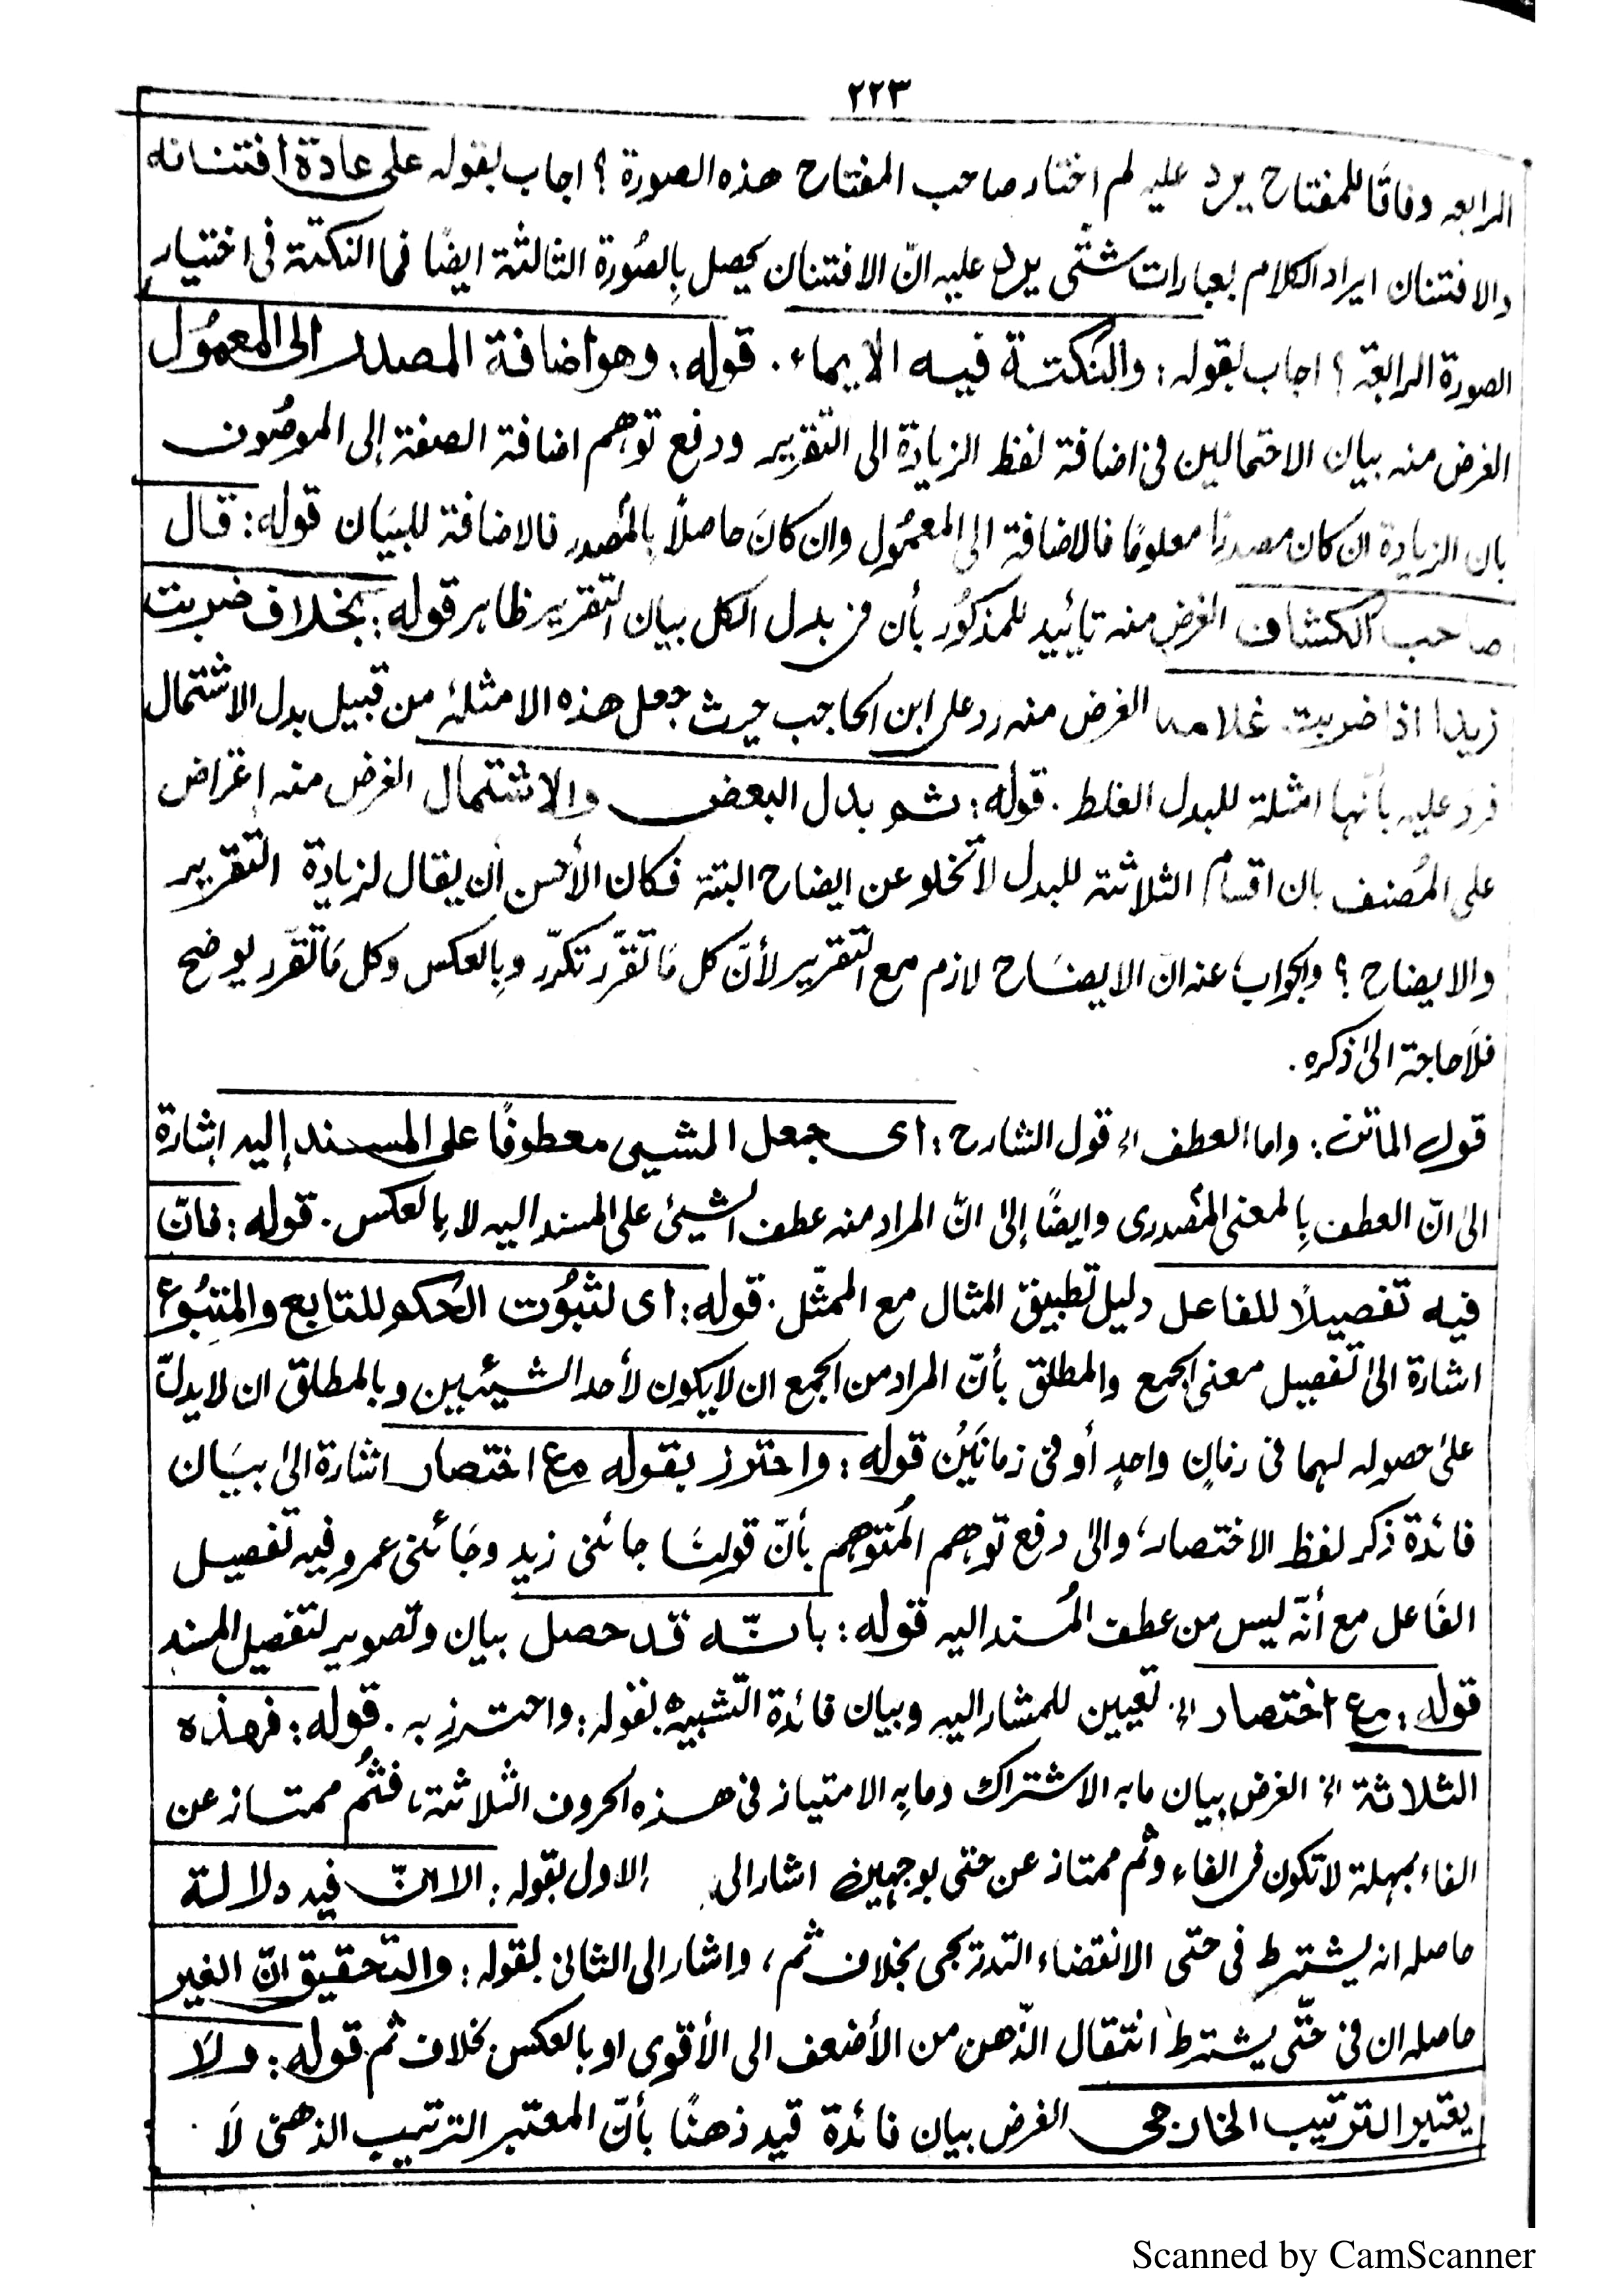 ٢٢٣
الرابعہ وفاقًا للمفتاح یرد علیہ لم اختار صاحب المفتاح ھذہ الصورۃ ؟ اجاب بقولہ علی عادۃ افتنانہ
والافتنان ایراد الکلام بعبارات شتّٰی یرد علیہ انّ الافتنان یحصل بِالصُورۃ الثالثۃ ایضًا فما النکتۃ فی اختیار
الصورۃ الرابعۃ ؟ اجاب بقولہ : والنکتۃ فیہ الایماء . قولہ : وھو اضافۃ المصدر الی المعمُول
الغرض منہ بیان الاحتمالین فی اضافۃ لفظ الزیادۃ الی التقریر ودفع توھم اضافۃ الصفۃ إلی الموصُوف
بان الزیادۃ ان کان مصدرًا معلومًا فالاضافۃ الی المعمُول وان کانَ حاصلاً بالمصدر فالاضافۃ للبیَان قولہ : قال
صاحب الکشاف الغرض منہ تأئید للمذکُور بأن فی بدل الکل بیان التقریر ظاہر قولہ : بخلاف ضربت
زیدا اذا ضربت غلامہ الغرض منہ رد علی ابن الحاجب حیث جعل ھذہ الامثلۃ من قبیل بدل الاشتمال
فرد علیہ بأنّہا امثلۃ للبدل الغلط . قولہ : ثم بدل البعض والاشتمال الغرض منہ إعراض
علی المُصنف بان اقسام الثلاثۃ للبدل لاتخلو عن ایضاح البتۃ فکان الأحسن أن یقال لزیادۃ التقریر
والایضاح ؟ والجواب عنہ انّ الایضَاح لازم مع التقریر لأنّ کل مَا تقرّر تکرّر وبِالعکس وکل مَا تقرّر یوضح
فلَا حاجۃ الیٰ ذکرہ .
قول الماتن : واما العطف الخ قول الشارح : ای جعل الشیئ معطوفًا علی المسند إلیہ اشارۃ
الیٰ انّ العطف بِالمعنی المَصدری وایضًا إلیٰ انّ المراد منہ عطف الشیئ علی المسند الیہ لا بِالعکس . قولہ : فانّ
فیہ تفصیلاً للفاعل دلیل تطبیق المثال مع الممثّل . قولہ : ای لثبُوت الحُکم للتابع والمتبُوع
اشارۃ الیٰ تفصیل معنی الجمع والمطلق بأنّ المراد من الجمع ان لایکون لأحد الشیئیین وبالمطلق ان لایدلّ
علیٰ حصولہ لہما فی زمانٍ واحدٍ أو فی زمانَیُن قولہ : واحترز بقولہ مع اختصار اشارۃ الیٰ بیَان
فائدۃ ذکر لفظ الاختصار، والیٰ دفع توھم المُتوھم بأنّ قولنَا جائنی زید وجَائنی عمرو فیہ تفصیل
الفَاعل مع أنّہ لیس من عطف المُسند الیہ قولہ : بانّہ قد حصل بیان وتصویر لتفصیل المسند
قولہ : مع اختصار الخ. تعیین للمشار الیہ وبیان فائدۃ التشبیہ بقولہ : واحترز بہ . قولہ : فھذہ
الثلاثۃ الخ الغرض بیان ما بہ الاشتراک وما بِہ الامتیاز فی ھذہ الحروف الثلاثۃ، فثُم ممتاز عن
الفاء بمہلۃ لاتکون فی الفاء وثم ممتاز عن حتی بوجہین اشار الی الاول بقولہ : الا انّ فیہ دلالۃ
حاصلہ انہ یشترط فی حتی الانقضاء التدریجی بخلاف ثم ، واشار الی الثانی بقولہ : والتحقیق انّ الغیر
حاصلہ ان فی حتّی یشترط انتقال الذّھن من الأضعف الی الأقوی او بالعکس بخلاف ثم قولہ : ولَا
یعتبر الترتیب الخارجی الغرض بیان فائدۃ قید ذھنًا بأنّ المعتبر الترتیب الذھنی لَا
Scanned by CamScanner